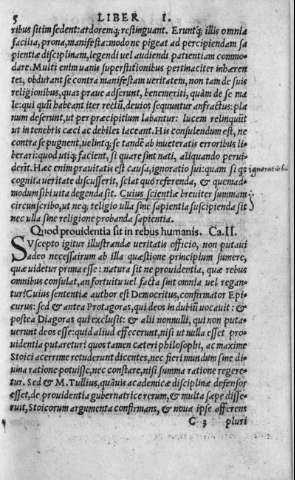 5 LIBER I.
ribus sitim sedent: ardoremq; restinguant. Eruntq; illis omnia
facilia, prona, manifesta: modo ne pigeat ad percipiendam sa
pientiæ disciplinam, legendi uel audiendi patientiam commo
dare. Multi enim uanis superstitionibus pertinaciter inhæren
tes, obdurant se contra manifestam ueritatem, non tam de suis
religionibus, quas praue adserunt, benemeriti, quàm de se ma
le: qui quũ habeant iter rectũ, deuios sequuntur anfractus: pla
num deserunt, ut per præcipitium labantur: lucem relinquũt
ut in tenebris cæci ac debiles iaceant. His consulendum est, ne
contra se pugnent, uelintq; se tandē ab inueteratis erroribus li
berari: quod utiq; facient, si quare sint nati, aliquando perui
derint. Hæc enim prauitatis est causa, ignoratio sui: quam si qs
cognita ueritate discusserit, sciat quò referenda, et quemad=
modum sibi uita degenda sit. Cuius scientiæ breuiter summam
circunscribo, ut neq; religio ulla sine sapientia suscipienda sit
nec ulla sine religione probanda sapientia.
Quod prouidentia sit in rebus humanis. Ca. II.
SVscepto igitur illustrandæ ueritatis officio, non putaui
adeo necessarium ab illa quæstione principium sumere,
quæ uidetur prima esse: natura sit ne prouidentia, quæ rebus
omnibus consulat, an fortuitu uel facta sint omnia uel regan=
tur: Cuius sententiæ author est Democritus, confirmator Epi
curus: sed et antea Protagoras, qui deos in dubiũ uocauit: et
postea Diagoras qui exclusit: et alij nonnulli, qui non puta=
uerunt deos esse: quid aliud effecerunt, nisi ut nulla esset pro=
uidentia putaretur: quos tamen cæteri philosophi, ac maxime
Stoici acerrime retuderunt dicentes, nec fieri mundum sine di=
uina ratione potuisse, nec constare, nisi summa ratione regere=
tur. Sed et M. Tullius, quāuis academicæ disciplinæ defensor
esset, de prouidentia gubernatrice rerum, et multa sæpe disse=
ruit, Stoicorum argumenta confirmans, et noua ipse afferens
C 3 pluri